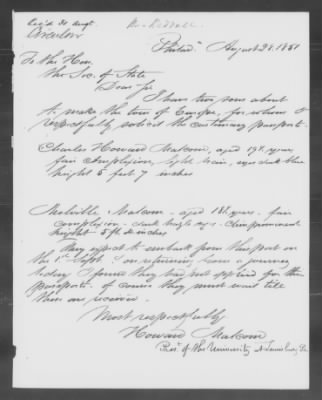 Rec'd 30 Augt
Philad. August 28. 1851
To the Hon.
The Sec. of State
Dear Sir
I have two sons about
to make the tour of Europe, for whom I
respectfully solicit the customary passports.
Charles Howard Malcom, aged 19 years,
fair complexion, light hair, eyes dark blue
height 5 feet 7 inches
Melville Malcom - aged 18 years. fair
complexion - dark
height 5 ft inches
They expect to embark from this port on
the 1st Sept. I on returning from a journey
today I found they had not applied for their
passports. Of course they must wait till
these are received.
Most respectfully
Howard Malcom
Pres. of the University at Lewisburg Pa